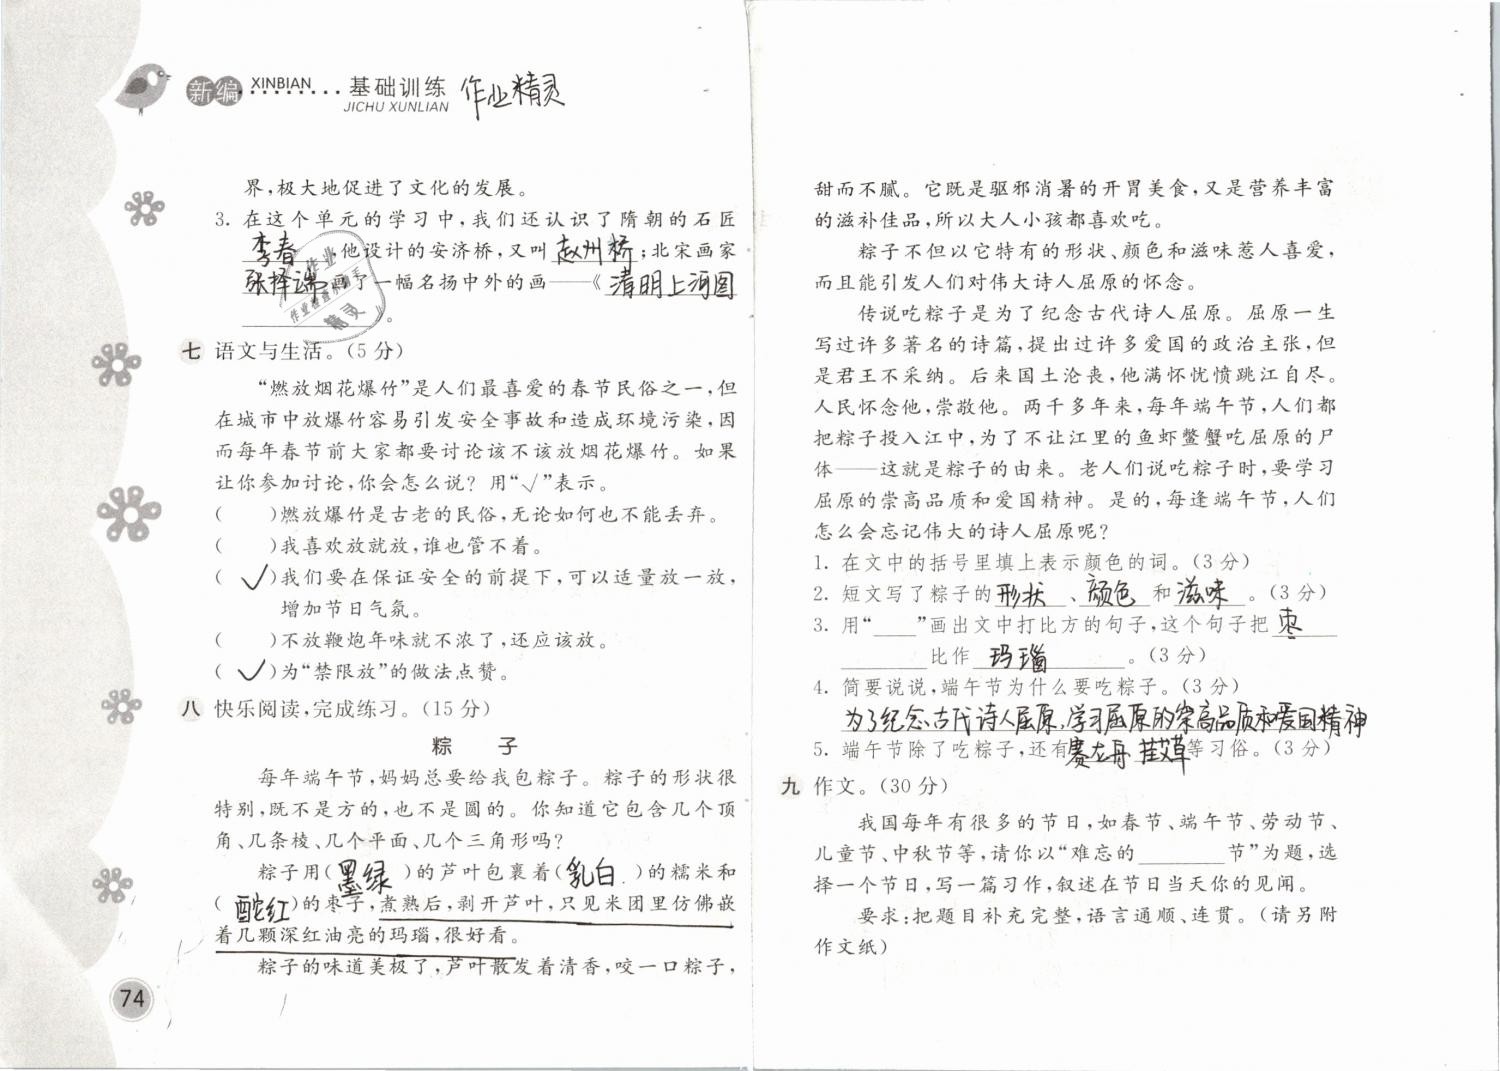 新编 XINBIAN 基础训练 作业精灵
JICHU XUNLIAN
界,极大地促进了文化的发展。
3. 在这个单元的学习中,我们还认识了隋朝的石匠
李春,他设计的安济桥,又叫赵州桥;北宋画家
张择端画了一幅名扬中外的画——《清明上河图
》。
作业
作业检查小助手
精灵
七 语文与生活。(5分)
“燃放烟花爆竹”是人们最喜爱的春节民俗之一,但
在城市中放爆竹容易引发安全事故和造成环境污染,因
而每年春节前大家都要讨论该不该放烟花爆竹。如果
让你参加讨论,你会怎么说?用“√”表示。
( )燃放爆竹是古老的民俗,无论如何也不能丢弃。
( )我喜欢放就放,谁也管不着。
( √ )我们要在保证安全的前提下,可以适量放一放,
增加节日气氛。
( )不放鞭炮年味就不浓了,还应该放。
( √ )为“禁限放”的做法点赞。
八 快乐阅读,完成练习。(15分)
粽 子
每年端午节,妈妈总要给我包粽子。粽子的形状很
特别,既不是方的,也不是圆的。你知道它包含几个顶
角、几条棱、几个平面、几个三角形吗?
粽子用(墨绿)的芦叶包裹着(乳白)的糯米和
(酡红)的枣子,煮熟后,剥开芦叶,只见米团里仿佛嵌
着几颗深红油亮的玛瑙,很好看。
粽子的味道美极了,芦叶散发着清香,咬一口粽子,
74
甜而不腻。它既是驱邪消暑的开胃美食,又是营养丰富
的滋补佳品,所以大人小孩都喜欢吃。
粽子不但以它特有的形状、颜色和滋味惹人喜爱,
而且能引发人们对伟大诗人屈原的怀念。
传说吃粽子是为了纪念古代诗人屈原。屈原一生
写过许多著名的诗篇,提出过许多爱国的政治主张,但
是君王不采纳。后来国土沦丧,他满怀忧愤跳江自尽。
人民怀念他,崇敬他。两千多年来,每年端午节,人们都
把粽子投入江中,为了不让江里的鱼虾鳖蟹吃屈原的尸
体——这就是粽子的由来。老人们说吃粽子时,要学习
屈原的崇高品质和爱国精神。是的,每逢端午节,人们
怎么会忘记伟大的诗人屈原呢?
1. 在文中的括号里填上表示颜色的词。(3分)
2. 短文写了粽子的形状、颜色和滋味。(3分)
3. 用“____”画出文中打比方的句子,这个句子把枣
比作玛瑙。(3分)
4. 简要说说,端午节为什么要吃粽子。(3分)
为了纪念古代诗人屈原,学习屈原的崇高品质和爱国精神
5. 端午节除了吃粽子,还有赛龙舟 挂艾草等习俗。(3分)
九 作文。(30分)
我国每年有很多的节日,如春节、端午节、劳动节、
儿童节、中秋节等,请你以“难忘的________节”为题,选
择一个节日,写一篇习作,叙述在节日当天你的见闻。
要求:把题目补充完整,语言通顺、连贯。(请另附
作文纸)